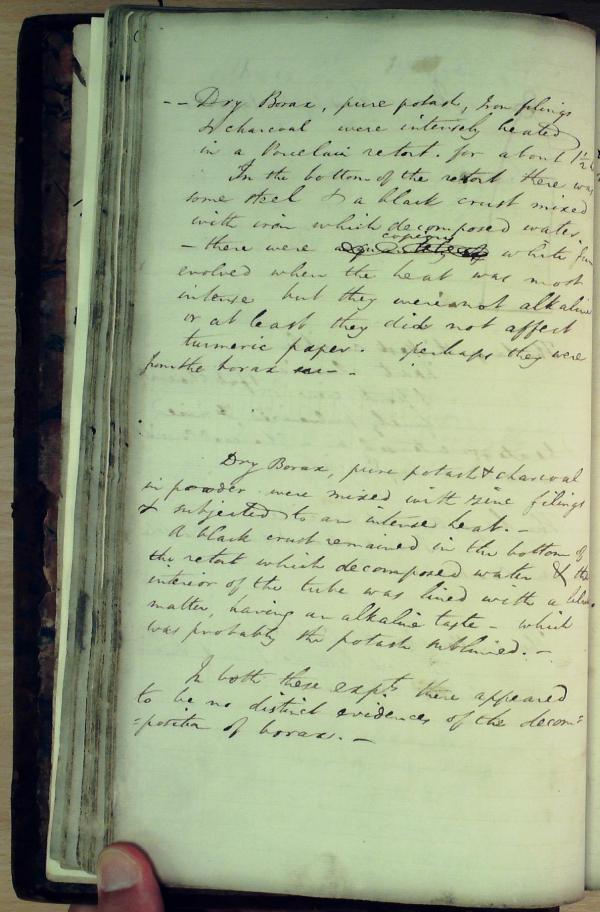 -- Dry Borax, pure potash, Iron filings
& charcoal were intensely heated
in a Porcelain retort. for about 1½
In the bottom of the retort there was
some steel & a black crust mixed
with iron which decomposed water.
- there were copious white fum
evolved when the heat was most
intense but they were not alkaline
or at least they did not affect
turmeric paper. perhaps they were
from the borax -
Dry Borax, pure potash & charcoal
in powder were mixed with zinc filings
& subjected to an intense heat. -
A black crust remained in the bottom of
the retort which decomposed water & the
interior of the tube was lined with a
matter, having an alkaline taste - which
was probably the potash sublimed. -
In both these expts there appeared
to be no distinct evidences of the decom=
=position of borax. -